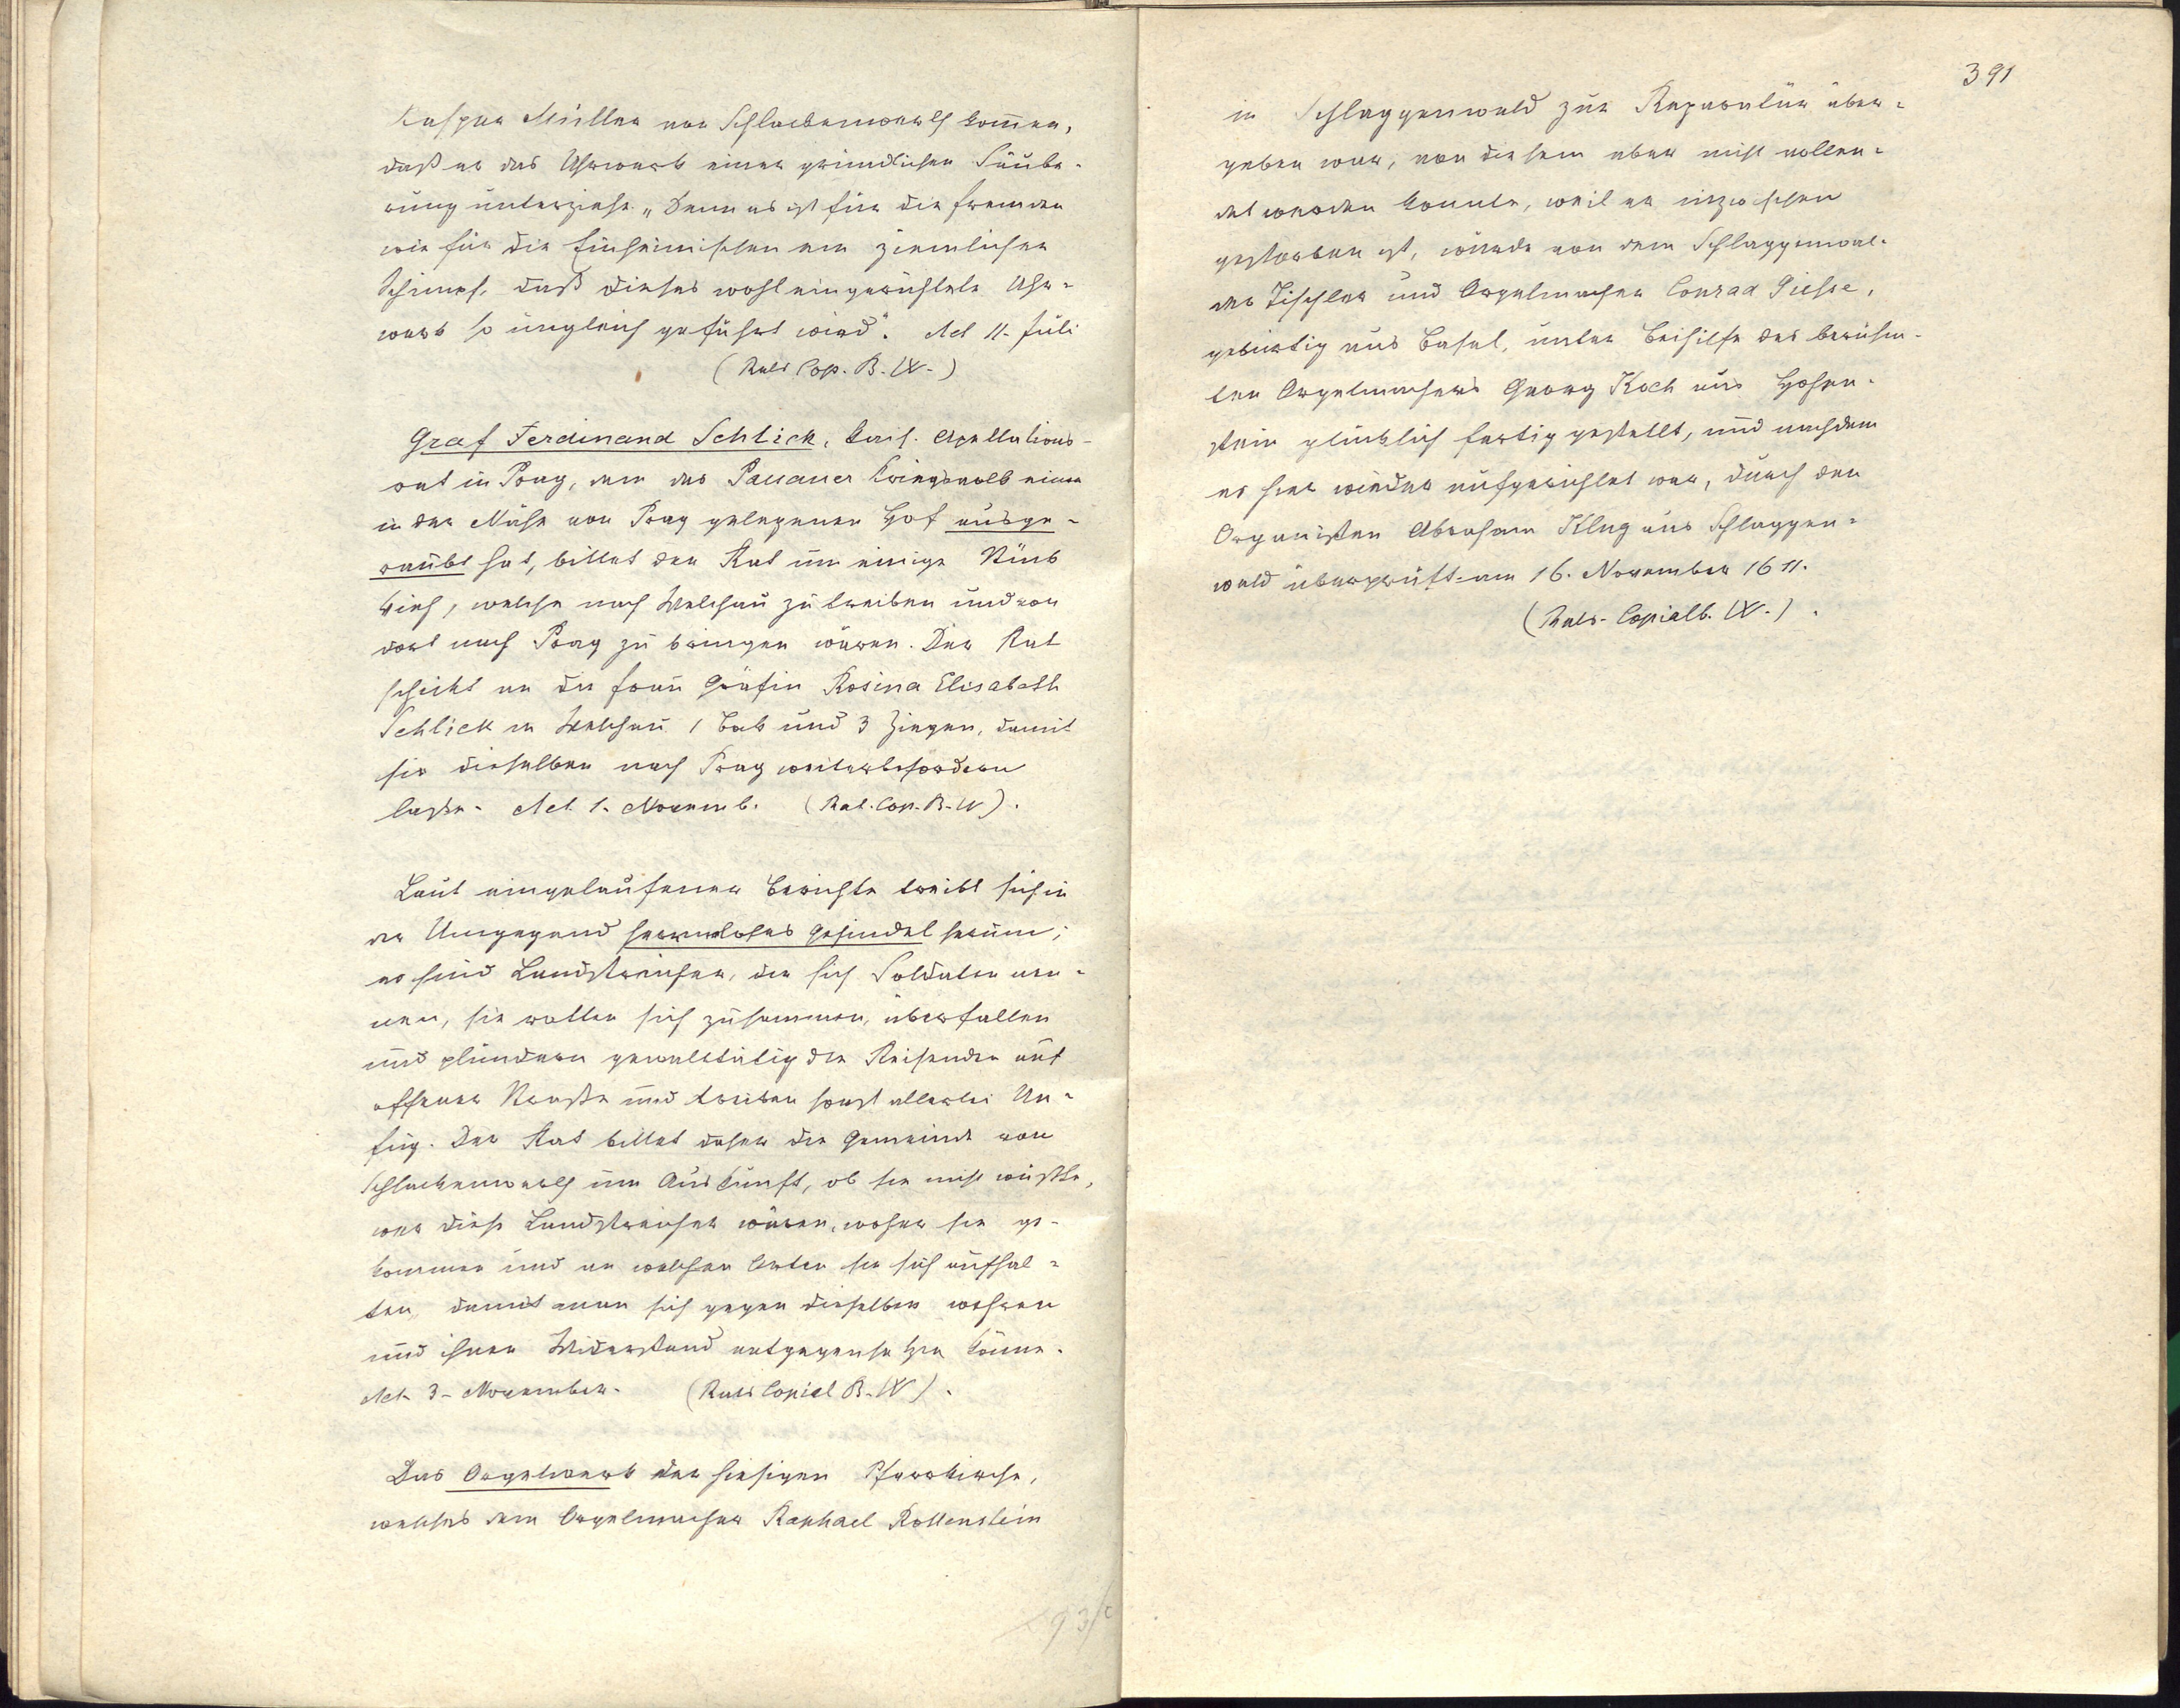 Kaspar Müller von Schlackenwerth kommen,
daß er das Uhrwerk einer gründlichen Säube-
rung unterziehe. „Denn es ist für die Fremden
wie für die Einheimischen ein ziemlicher
Schimpf, daß dieses wohl eingerichtete Uhr-
werk so ungleich geführt wird". Act 11. Juli
(Rats Cop. B. IX.)
Graf Ferdinand Schlick, kais. Apellations-
rat in Prag, dem das Passauer Kriegsvolk einen
in der Nähe von Prag gelegenen Hof ausge-
raubt hat, bittet den Rat um einige Stück
Vieh, welche nach Welchau zu treiben und von
dort nach Prag zu bringen wären. Der Rat
schickt an die Frau Gräfin Rosina Elisabeth
Schlick in Welchau 1 Bok und 3 Ziegen, damit
sie dieselben nach Prag weiterbefördern
lasse. Act 1. Novemb. (Rat. Cop. B. IX).
Laut eingelaufener Berichte treibt sich in
der Umgegend herrenloses Gesindel herum;
es sind Landstreicher, die sich Soldaten nen-
nen, sie rotten sich zusammen, überfallen
und plündern gewalttätig die Reisenden auf
offener Straße und treiben sonst allerlei Un-
fug. Der Rat bittet daher die Gemeinde von
Schlackenwerth um Auskunft, ob sie nicht wüßte,
wer diese Landstreicher wären, woher sie ge-
kommen und an welchen Orten sie sich aufhal-
ten, damit man sich gegen dieselben wehren
und ihnen Widerstand entgegensetzen könne.
Act 3. November. (Rats Copial B. IX).
Das Orgelwerk der hiesigen Pfarrkirche,
welches dem Orgelmacher Raphael Rottenstein
391
in Schlaggenwald zur Reparatur über-
geben war, von diesem aber nicht vollen-
det werden konnte, weil er inzwischen
gestorben ist, wurde von dem Schlaggenwal-
der Tischler und Orgelmacher Conrad Giesse,
gebürtig aus Basel, unter Beihilfe des berühm-
ten Orgelmachers Georg Koch aus Hohen-
stein glücklich fertig gestellt, und nachdem
es hier wieder aufgerichtet war, durch den
Organisten Abraham Klug aus Schlaggen-
wald überprüft am 16. November 1611.
(Rats-Copialb. IX.).